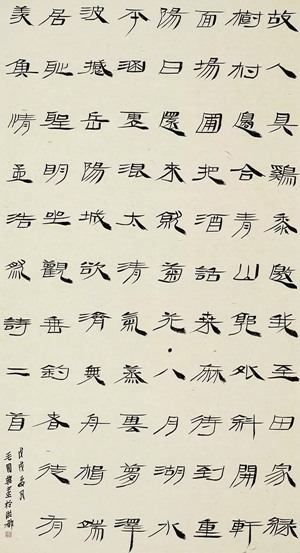 故人具鷄黍邀我至田家綠
樹村邊合青山郭外斜開軒
面場圃把酒話桑麻待到重
陽日還來就菊花八月湖水
平涵虛混太清氣蒸雲夢澤
波撼岳陽城欲濟無舟楫端
居恥聖明坐觀垂釣者徒有
羨魚情孟浩然詩二首
戊戌月
毛國典書於洪都